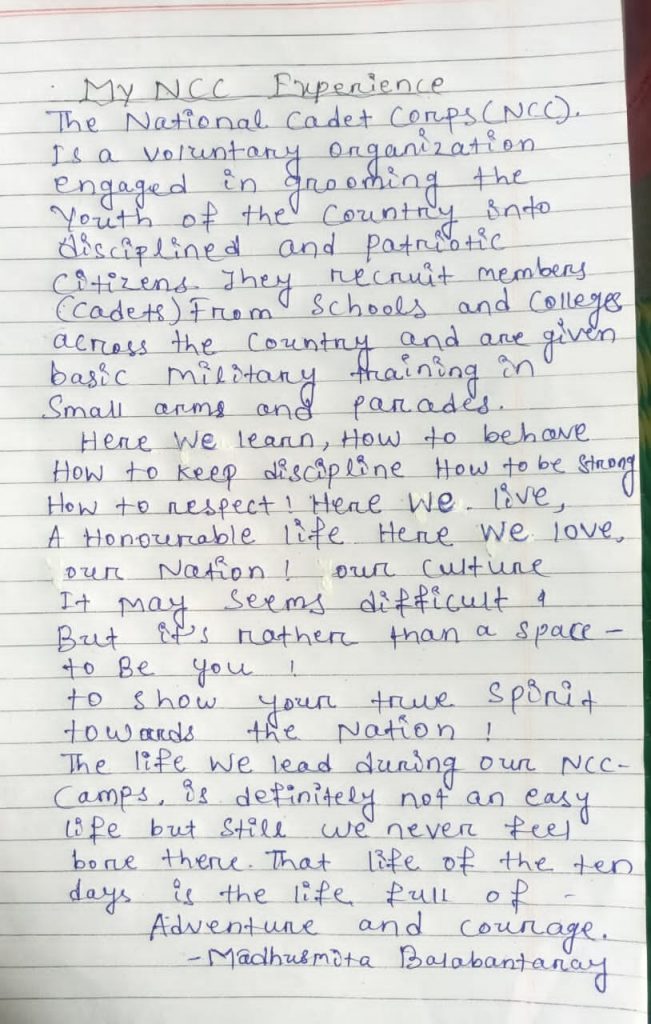 My NCC Experience
The National Cadet Corps (NCC).
Is a voluntary organization
engaged in grooming the
Youth of the Country into
disciplined and patriotic
Citizens. They recruit members
(Cadets) From Schools and Colleges
across the Country and are given
basic military training in
Small arms and parades.
Here We learn, How to behave
How to keep discipline How to be Strong
How to respect! Here We live,
A Honourable life. Here We love,
our Nation! our culture
It may seems difficult &
But it's rather than a space -
to Be you !
to show your true Spirit
towards the Nation !
The life We lead during our NCC-
Camps, is definitely not an easy
life but still we never feel
bore there. That life of the ten
days is the life full of -
Adventure and courage.
- Madhusmita Balabantaray